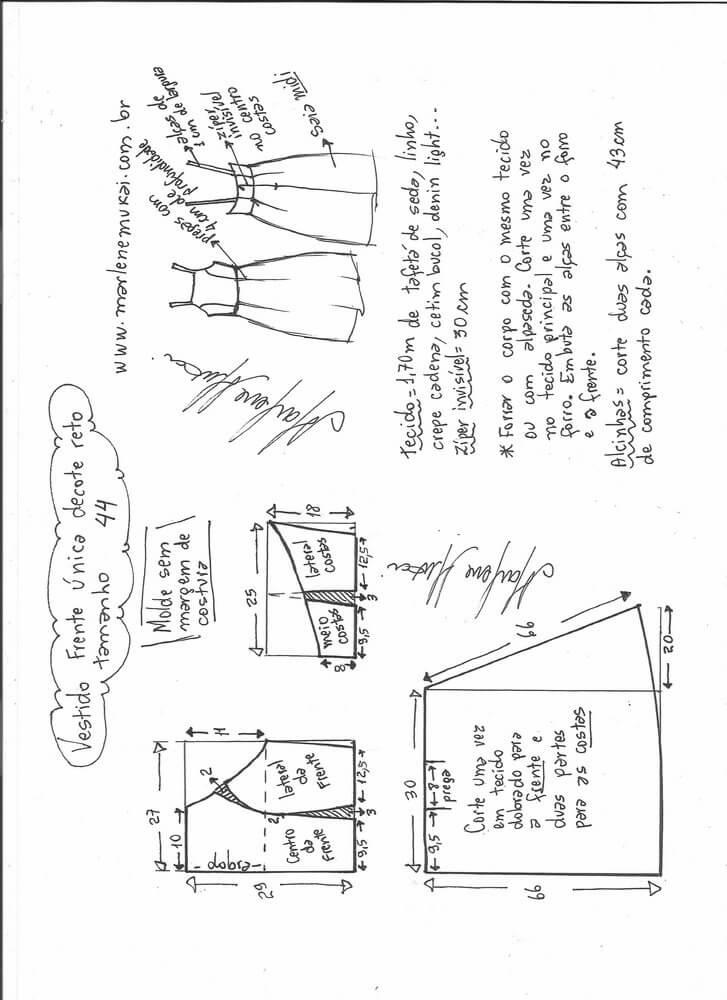 Vestido Frente única decote reto
tamanho 44
Molde sem
margem de
costura
www.marlenemukai.com.br
pregas com
4 cm de
profundidade
alças de
1 cm de largura
zíper
invisível
no centro
costas
saia midi
Marlene Mukai
27
10
11
29
-dobra-
2
2
Centro
da
Frente
lateral
da
Frente
9,5
3
12,5
25
18
8
meio
costas
lateral
costas
9,5
3
12,5
Tecido=1,70m de tafetá de seda, linho,
crepe cadena, cetim bucol, denin light...
Zíper invisível=30cm
*Forrar o corpo com o mesmo tecido
ou com alpaseda. Corte uma vez
no tecido principal e uma vez no
forro. Embuta as alças entre o forro
e a frente.
Alcinhas= corte duas alças com 43cm
de comprimento cada.
Marlene Mukai
30
9,5
8
prega
66
66
20
Corte uma vez
em tecido
dobrado para
a frente e
duas partes
para as costas